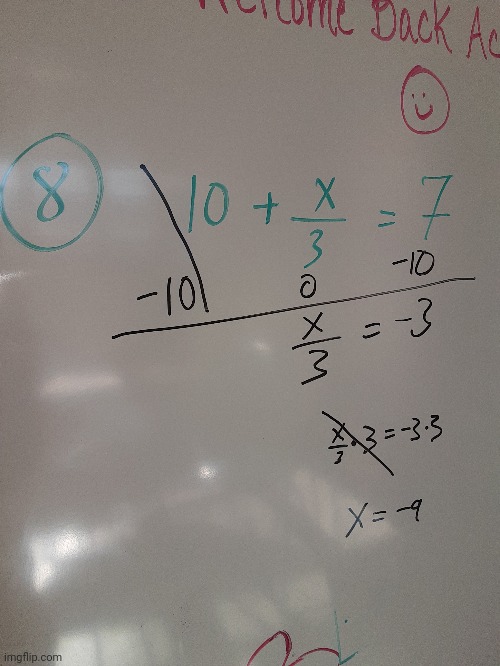 Welcome Back Ac
8
10 + x/3 = 7
-10 0 -10
x/3 = -3
x/3 · 3 = -3 · 3
x = -9
imgflip.com